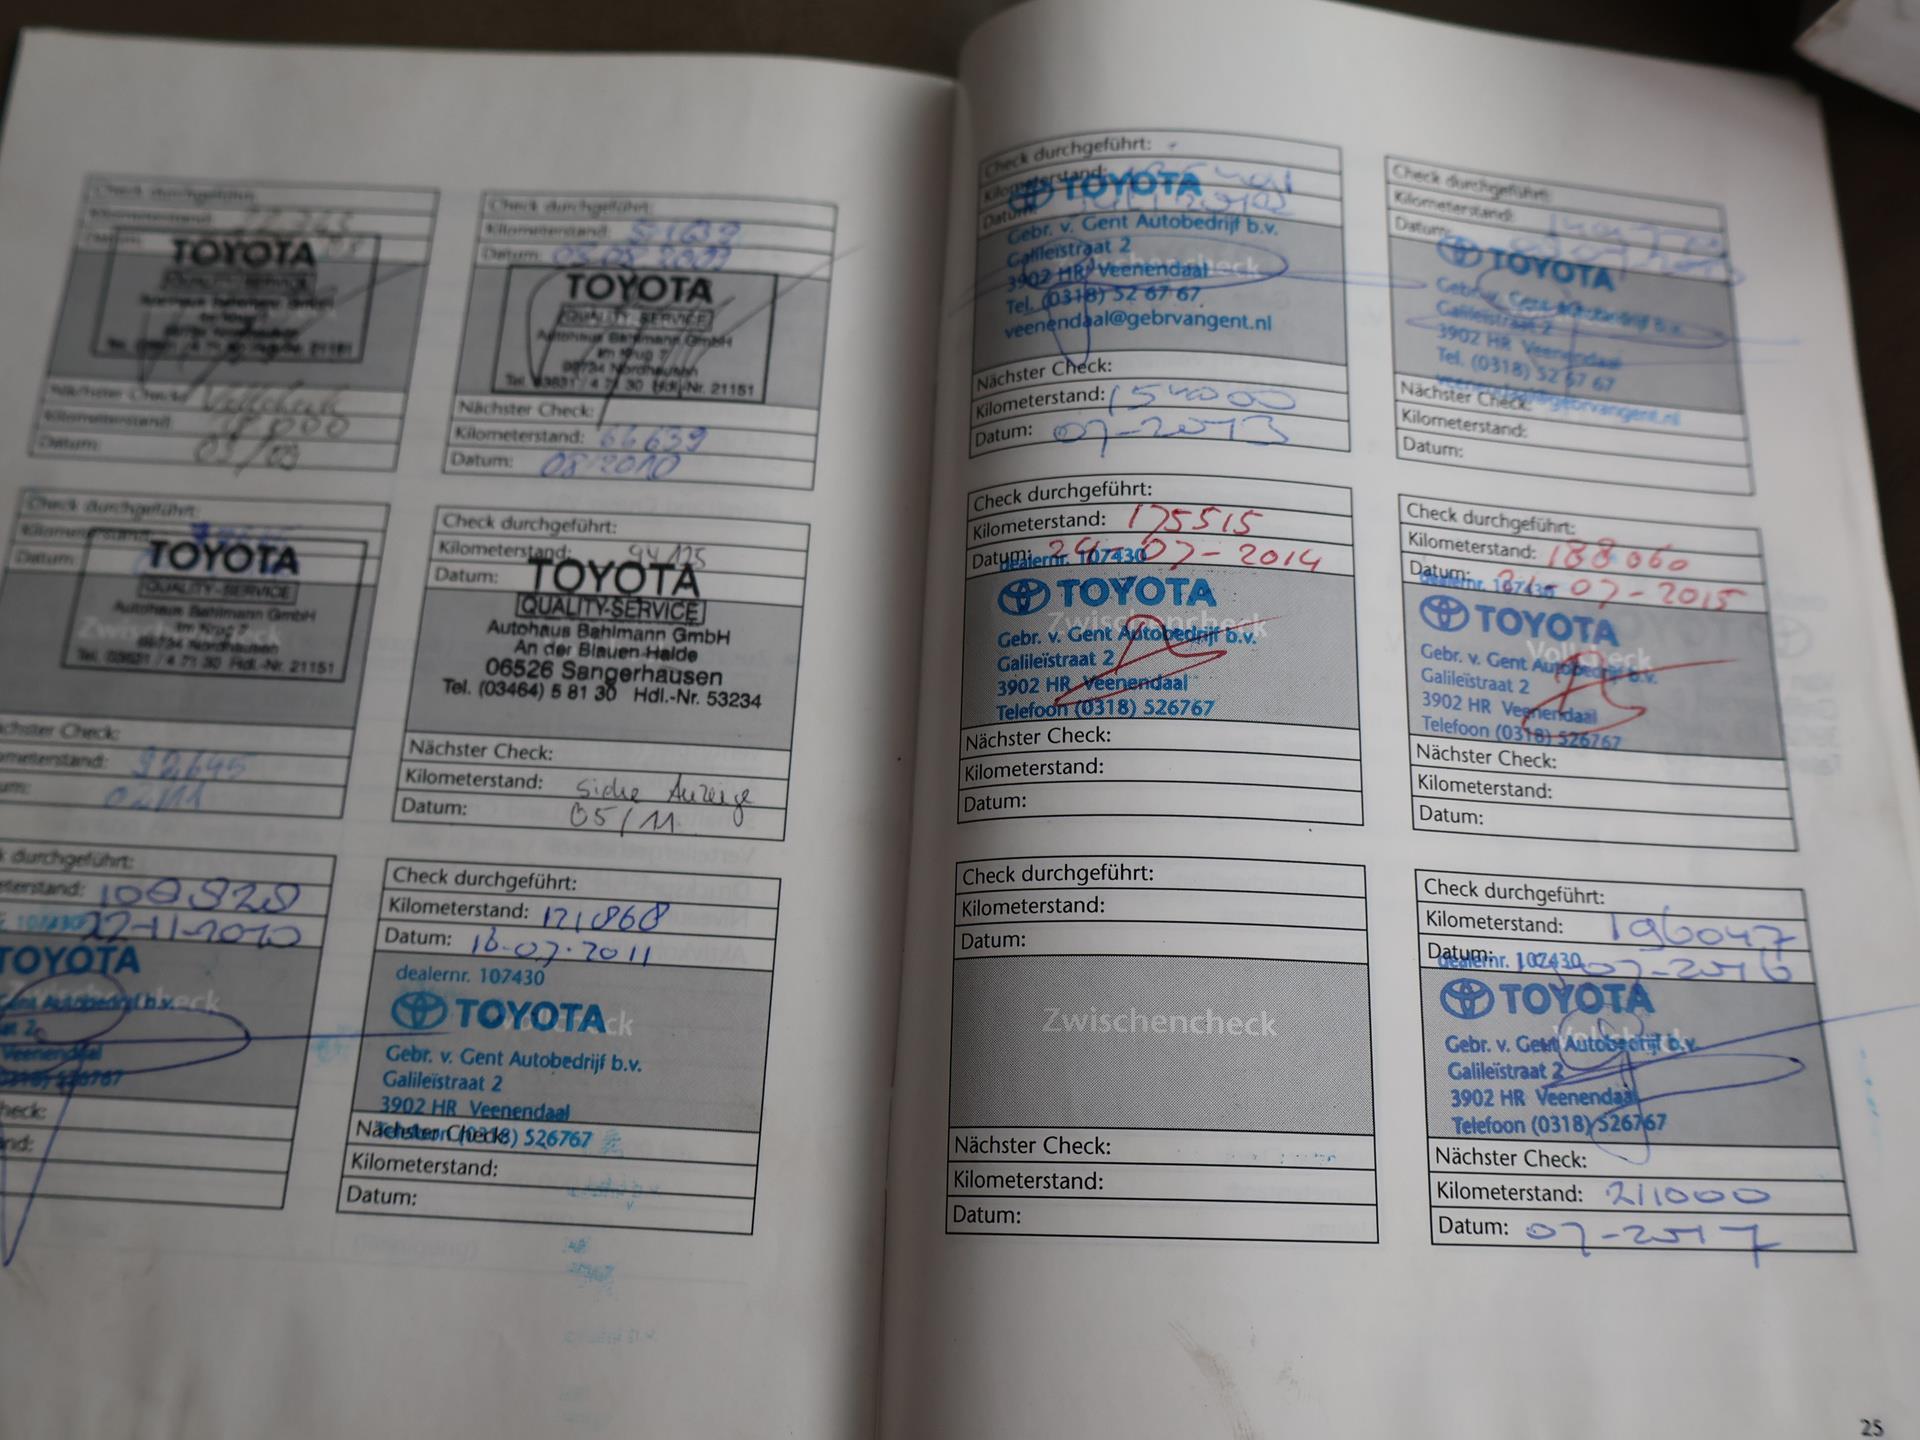 Check durchgeführt:
Kilometerstand:
Datum:
TOYOTA
QUALITY-SERVICE
Im Krug 7
99734 Nordhausen
Nächster Check: Vollcheck
Kilometerstand:
Datum: 03/09
Check durchgeführt:
Kilometerstand: 51639
Datum: 05.08.2009
TOYOTA
QUALITY-SERVICE
Autohaus Bahlmann GmbH
Im Krug 7
99734 Nordhausen
Tel. 03631 / 4 71 30 Hdl.-Nr. 21151
Nächster Check:
Kilometerstand: 66639
Datum: 08/2010
Check durchgeführt:
Kilometerstand:
Datum:
TOYOTA
QUALITY-SERVICE
Autohaus Bahlmann GmbH
Im Krug 7
99734 Nordhausen
Tel. 03631 / 4 71 30 Hdl.-Nr. 21151
Zwischencheck
Kilometerstand: 92645
02/11
Check durchgeführt:
Kilometerstand: 94125
Datum:
TOYOTA
QUALITY-SERVICE
Autohaus Bahlmann GmbH
An der Blauen Halde
06526 Sangerhausen
Tel. (03464) 5 81 30 Hdl.-Nr. 53234
Nächster Check:
Kilometerstand: siehe Anzeige
Datum: 05/11
durchgeführt:
107430
TOYOTA
Zwischencheck
Gent Autobedrijf b.v.
Veenendaal
526767
Check durchgeführt:
Kilometerstand: 121868
Datum: 18-07-2011
dealernr. 107430
TOYOTA
Vollcheck
Gebr. v. Gent Autobedrijf b.v.
Galileïstraat 2
3902 HR Veenendaal
Telefoon (0318) 526767
Nächster Check:
Kilometerstand:
Datum:
Check durchgeführt:
Kilometerstand:
Datum:
TOYOTA
Gebr. v. Gent Autobedrijf b.v.
Galileïstraat 2
Zwischencheck
3902 HR Veenendaal
Tel. (0318) 52 67 67
veenendaal@gebrvangent.nl
Nächster Check:
Kilometerstand: 154000
Datum: 07-2013
Check durchgeführt:
Kilometerstand:
Datum:
TOYOTA
Gebr. v. Gent Autobedrijf b.v.
Galileïstraat 2
3902 HR Veenendaal
Tel. (0318) 52 67 67
veenendaal@gebrvangent.nl
Nächster Check:
Kilometerstand:
Datum:
Check durchgeführt:
Kilometerstand: 175515
Datum: 24-07-2014
dealernr. 107430
TOYOTA
Zwischencheck
Gebr. v. Gent Autobedrijf b.v.
Galileïstraat 2
3902 HR Veenendaal
Telefoon (0318) 526767
Nächster Check:
Kilometerstand:
Datum:
Check durchgeführt:
Kilometerstand: 188060
Datum: 21-07-2015
dealernr. 107430
TOYOTA
Vollcheck
Gebr. v. Gent Autobedrijf b.v.
Galileïstraat 2
3902 HR Veenendaal
Telefoon (0318) 526767
Nächster Check:
Kilometerstand:
Datum:
Check durchgeführt:
Kilometerstand:
Datum:
Zwischencheck
Nächster Check:
Kilometerstand:
Datum:
Check durchgeführt:
Kilometerstand: 196047
Datum: 07-2016
dealernr. 107430
TOYOTA
Vollcheck
Gebr. v. Gent Autobedrijf b.v.
Galileïstraat 2
3902 HR Veenendaal
Telefoon (0318) 526767
Nächster Check:
Kilometerstand: 211000
Datum: 07-2017
25